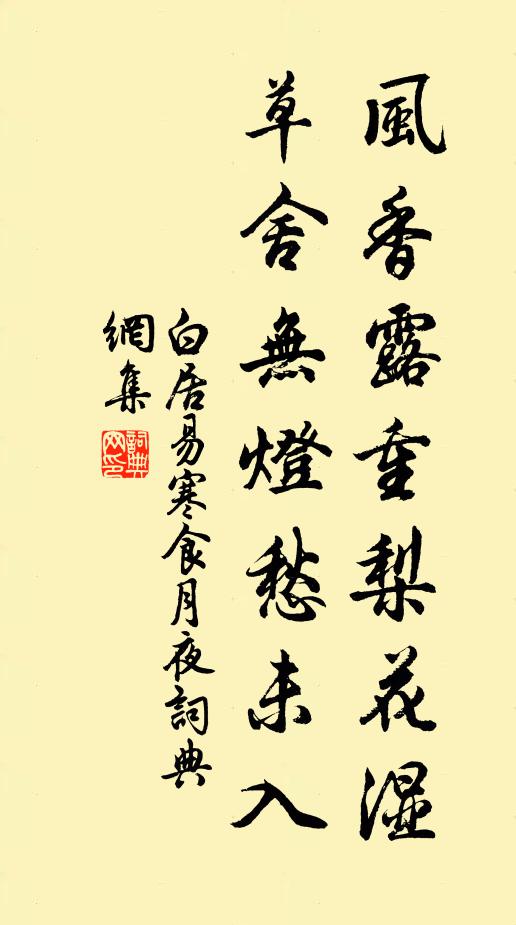 風香露重梨花濕
草舍無燈愁未入
白居易寒食月夜詞典
網集
詞典网印